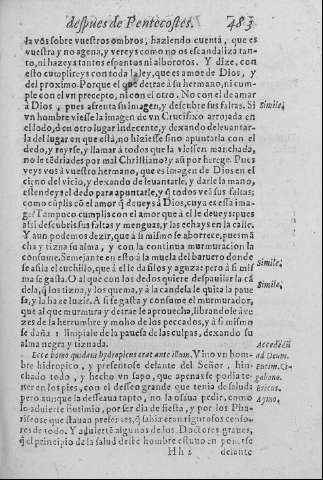 despues de Pentecostes. 483
la vôs sobre vuestros ombros, haziendo cuentà, que es
vuestra y no agena, y vereys como no os escandalizâ tan-
to, ni hazeys tantos espantos ni alborotos. Y dize, con
esto cumplireys con toda la ley, que es amor de Dios, y
del proximo. Porque el que detrae â su hermano, ni cum-
ple con el vn precepto, ni con el otro. No con el de amar
â Dios, pues afrenta su imagen, y descubre sus faltas. Si
Simile,
vn hombre viesse la imagen de vn Crucifixo arrojada en
el lodo, ò en otro lugar indecente, y dexando de leuantar-
la del lugar en que està, no hiziesse sino apuntarla con el
dedo, y reyrse, y llamar â todos que la viessen manchada,
no le tēdriades por mal Christiano? y aū por herege. Pues
veys vos â vuestro hermano, que es imagen de Dios en el
cieno del vicio, y dexando de leuantarle, y darle la mano,
estendeys el dedo para apuntarle, y q̃ todos veā sus faltas;
como cūplis cō el amor q̃ deueys â Dios, cuya es essa ima-
ge? Tampoco cumplis con el amor que â el le deueys: pues
assi descubris sus faltas y menguas, y los echays en la calle.
Y aun podemos dezir, que â si mismo se aborrece, pues mā
cha y tizna su alma, y con la continua murmuracion la
consume. Semejante en esto â la muela del baruero donde
Simile,
se afila el cuchillo, que â el le da filos y aguza: pero â si mis
ma se gasta. O al que con los dedos quiere despauilar la cā
Simile,
dela, q̃ los tizna, y los quema, y â la candela le quita la paue
sa, y la haze luzir. A si se gasta y consume el murmurador,
que al que murmura y detrae le aprouecho, librandole â ve
zes de la herrumbre y moho de los peccados, y â si mismo
se daña: limpiale de la pauesa de las culpas, dexando su
alma negra y tiznada.
Ecce homo quidam hydropicus erat ante illum. Vino vn hom-
bre hidropico, y presentose delante del Señor, hin-
chado todo, y hecho vn sapo, que apenas se podia te-
ner en los pies, con el desseo grande que tenia de salud:
pero aunque la desseaua tanto, no la osaua pedir, como
lo aduierte Eutimio, por ser dia de fiesta, y por los Pha-
riseos que estauan presentes, q̃ sabia eran rigurosos censo-
res de todo. Y aduierte algunos de los Doctores graues,
q̃ el principio de la salud deste hombre estuuo en ponerse
ad Deum.
Eutim. Ci-
Ericos.
Aymo,
Hh 2 delante